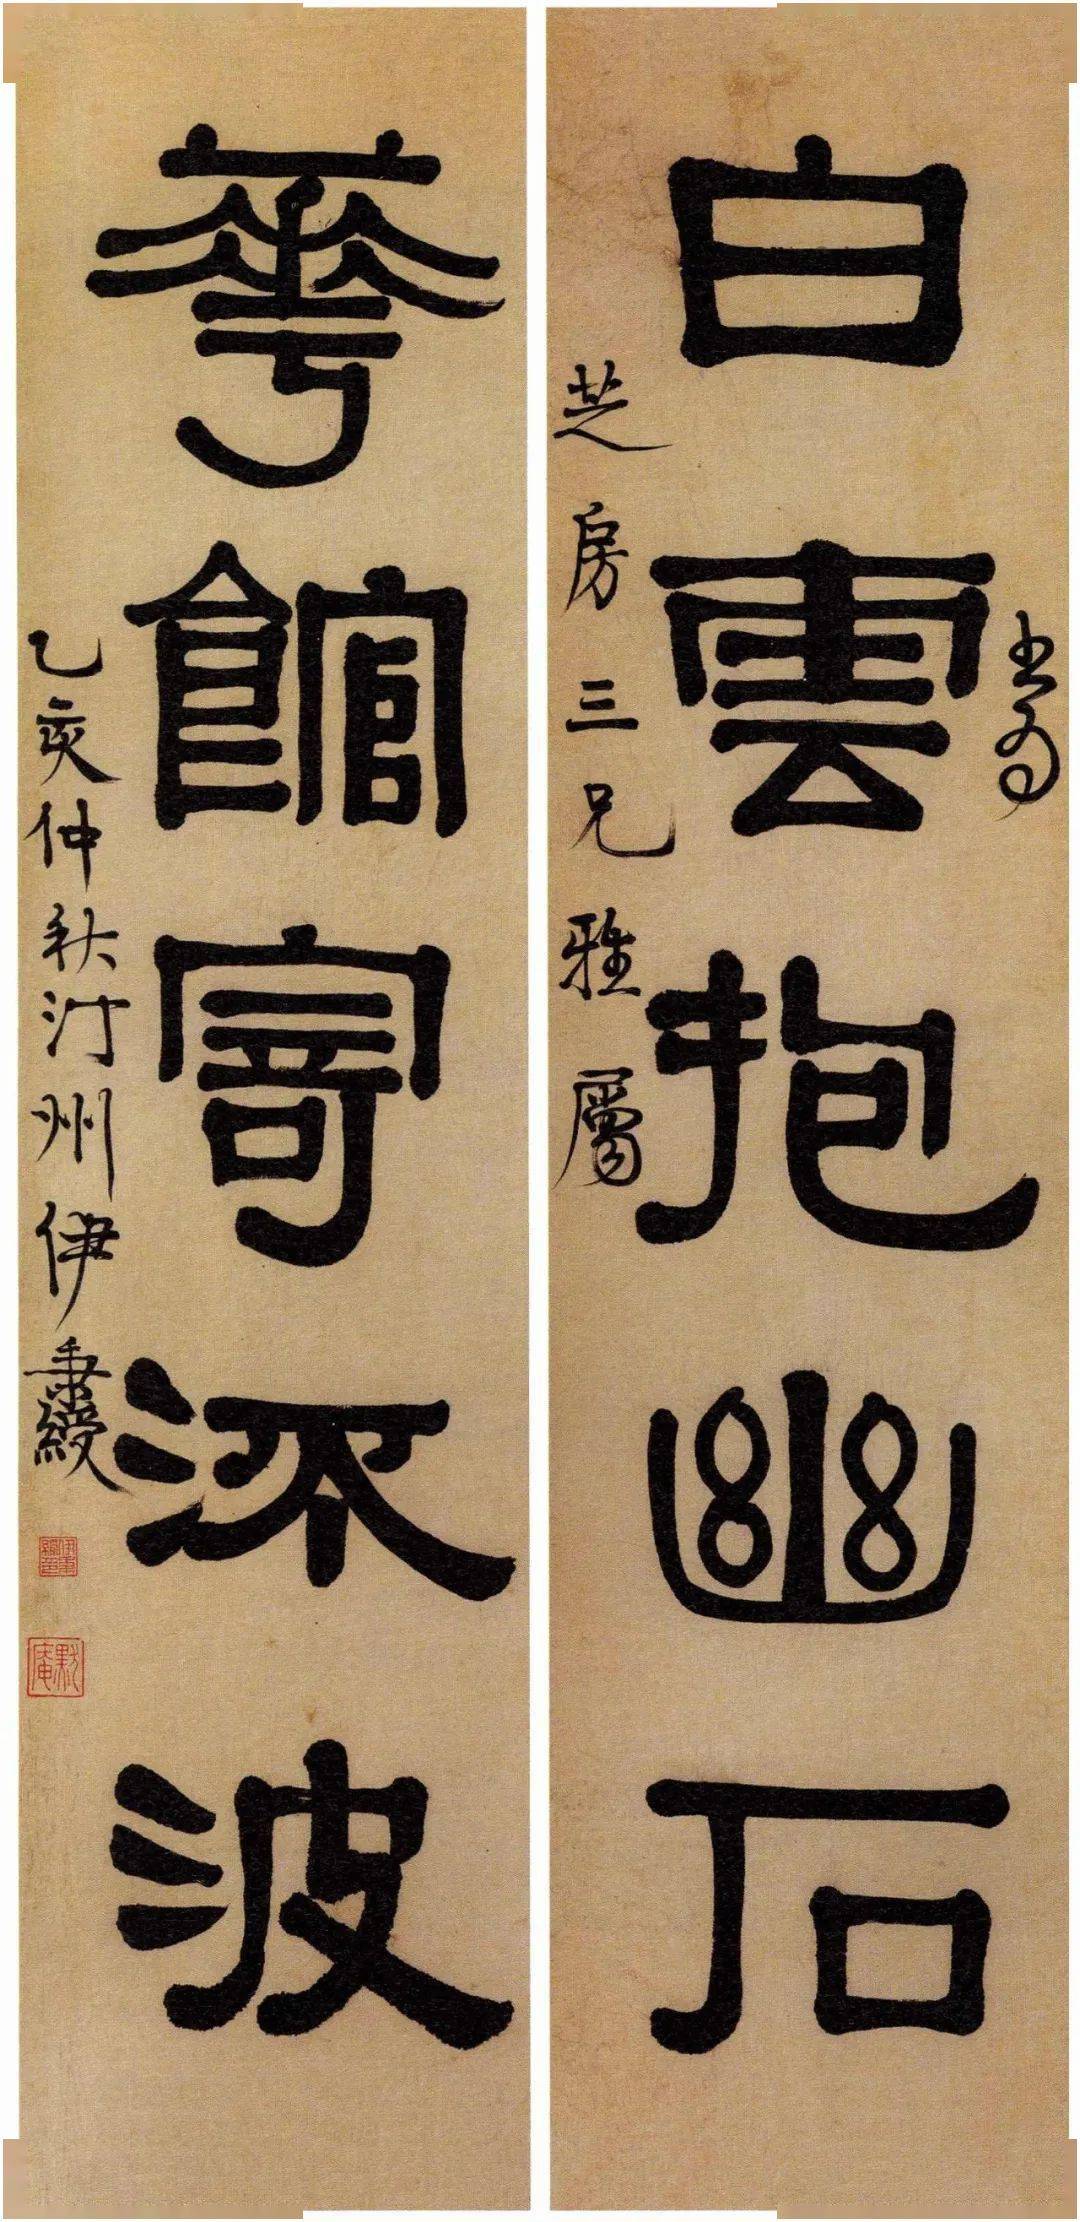 書為
白雲抱幽石
芝房三兄雅屬
華館寄㳅波
乙亥仲秋汀州伊秉綬
伊秉綬印
默庵